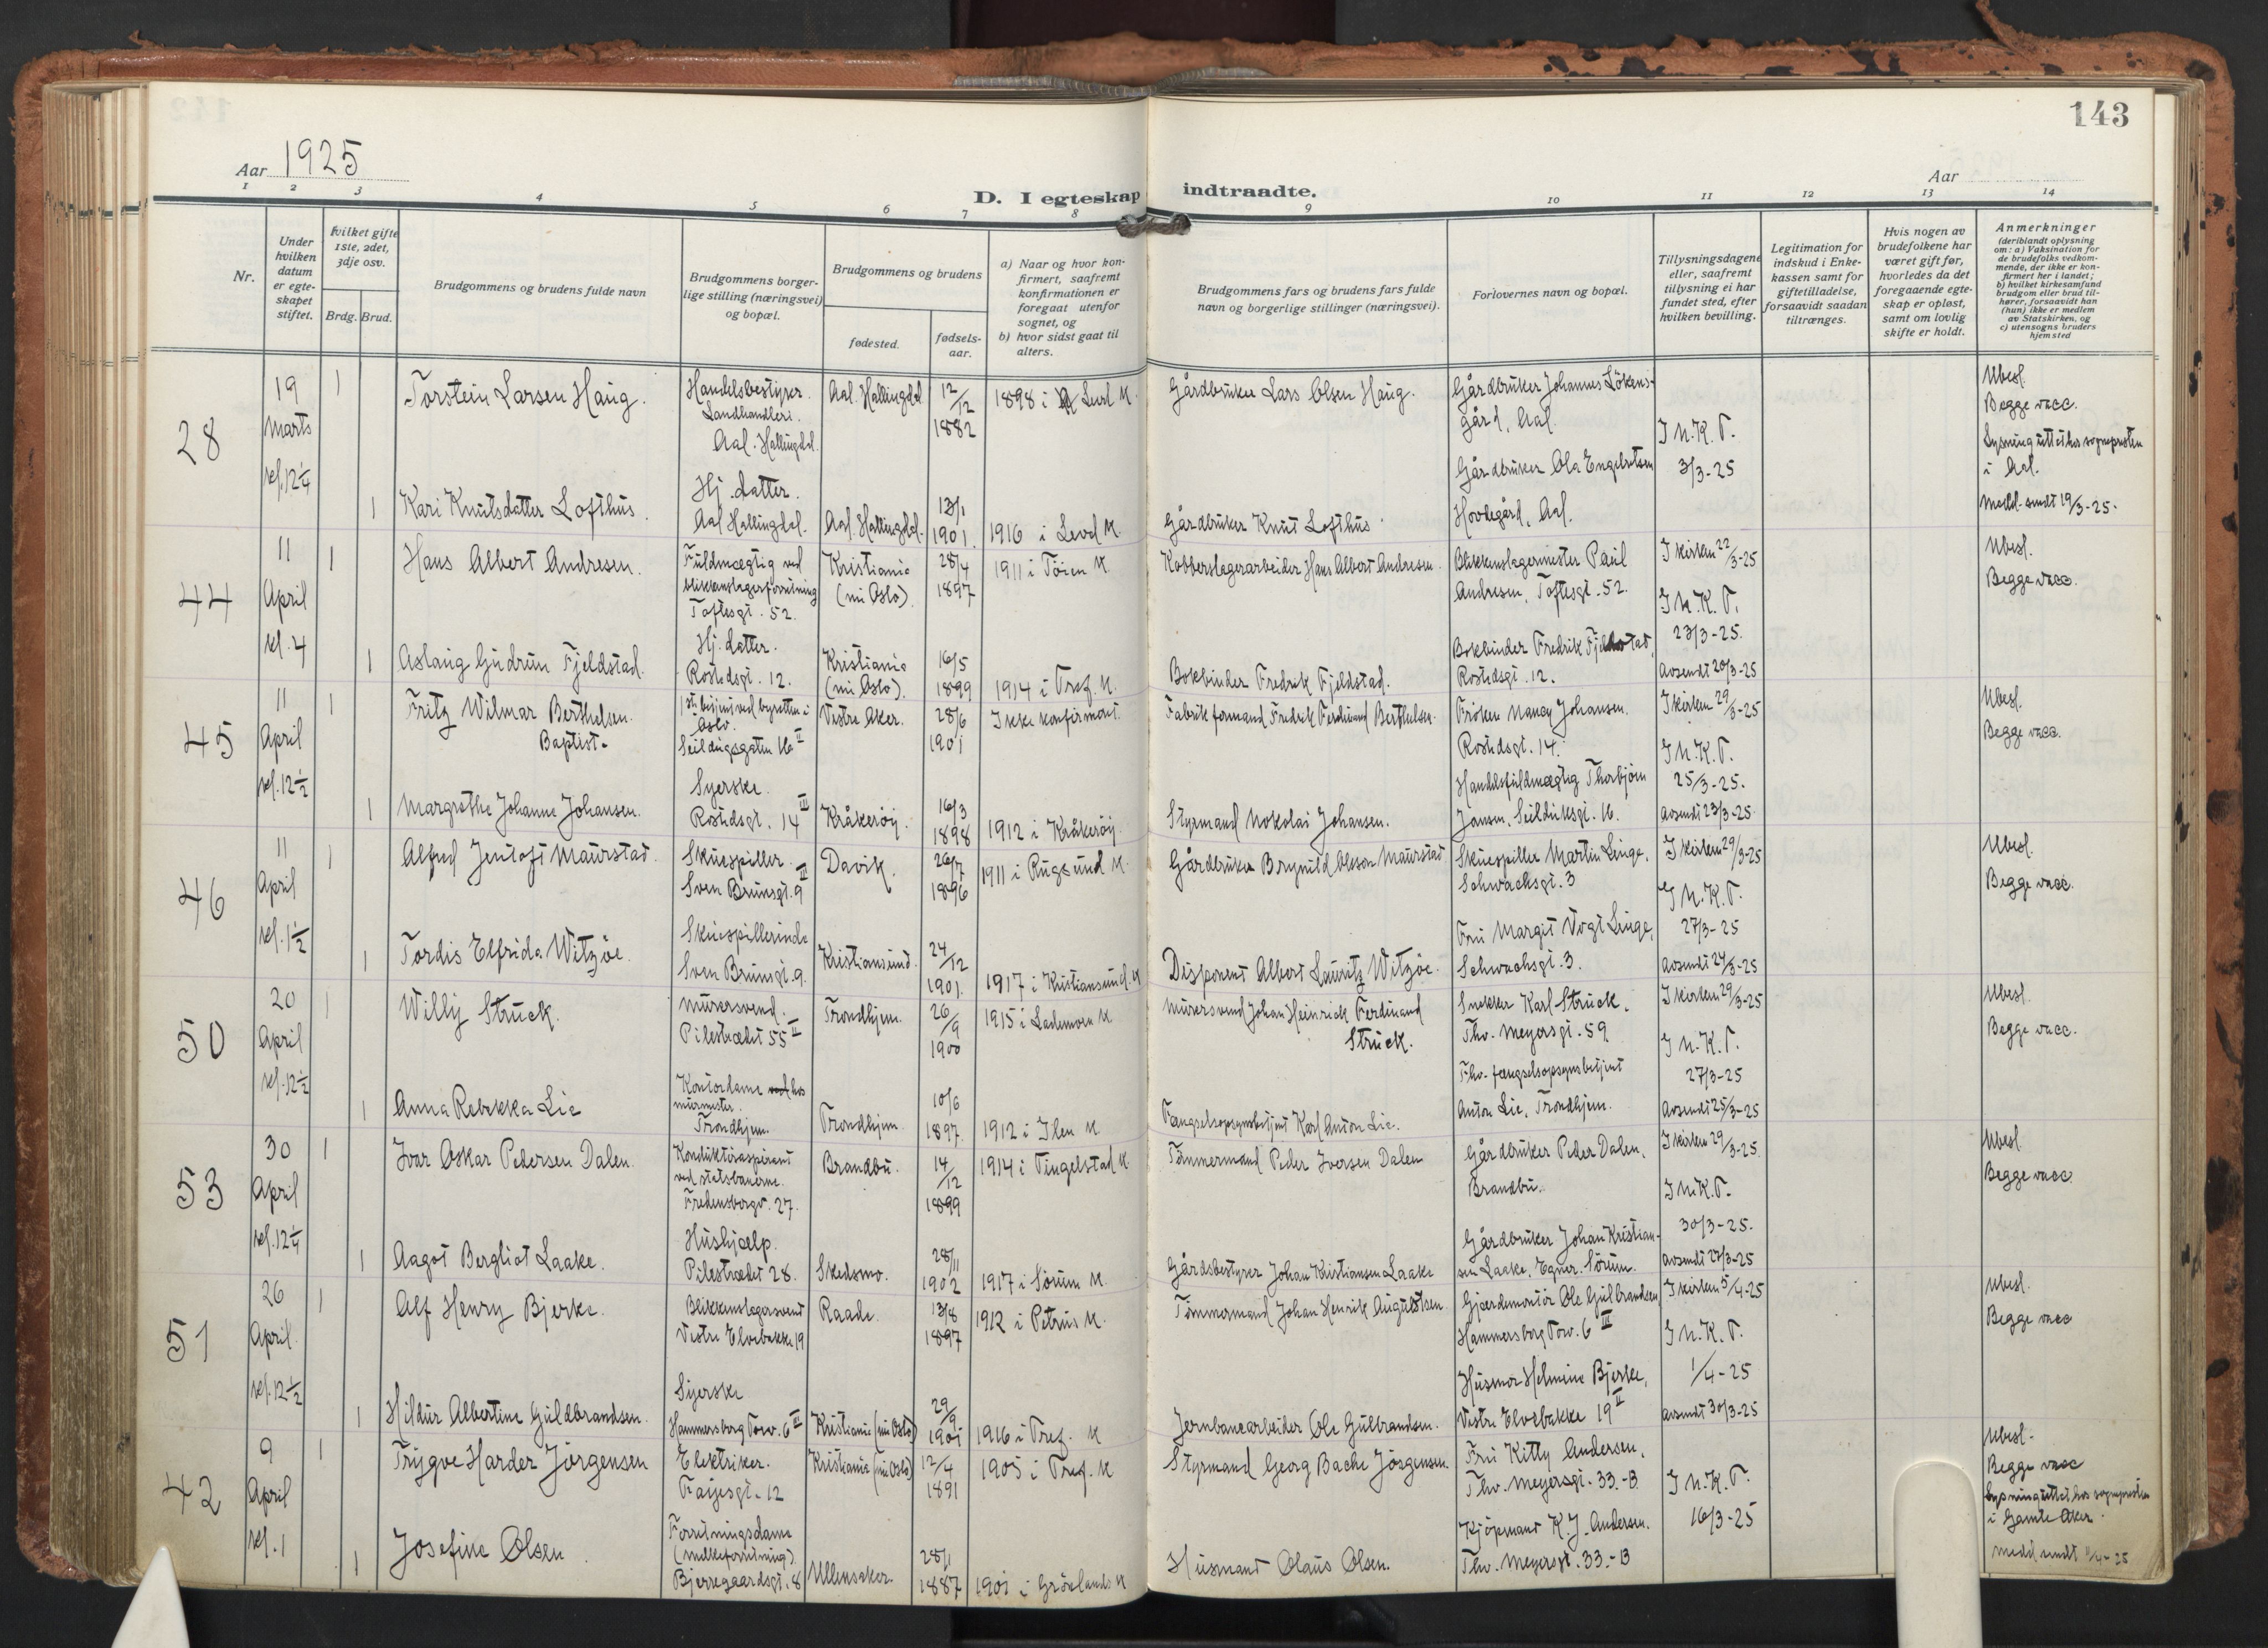 143
Aar 1925
D. I egteskap indtraadte.
Aar
1 2 3 4 5 6 7 8 9 10 11 12 13 14
Nr.
Under hvilken datum er egte-skapet stiftet.
Hvilket gifte 1ste, 2det, 3dje osv.
Brdg. Brud.
Brudgommens og brudens fulde navn
Brudgommens borger-lige stilling (næringsvei) og bopæl.
Brudgommens og brudens
fødested.
fødsels-aar.
a) Naar og hvor kon-firmert, saafremt konfirmationen er foregaat utenfor sognet, og
b) hvor sidst gaat til alters.
Brudgommens fars og brudens fars fulde navn og borgerlige stillinger (næringsvei).
Forlovernes navn og bopæl.
Tillysningsdagene eller, saafremt tillysning ei har fundet sted, efter hvilken bevilling.
Legitimation for indskud i Enke-kassen samt for giftetilladelse, forsaavidt saadan tiltrænges.
Hvis nogen av brudefolkene har været gift før, hvorledes da det foregaaende egte-skap er opløst, samt om lovlig skifte er holdt.
Anmerkninger
(deriblandt oplysning om: a) Vaksination for de brudefolks vedkom-mende, der ikke er kon-firmert her i landet; b) hvilket kirkesamfund brudgom eller brud til-hører, forsaavidt han (hun) ikke er medlem av Statskirken, og c) utensogns bruders hjemsted
28
19 Marts kl. 12¼
1
Torstein Larsen Haug.
Handelsbestyrer. Landhandleri. Aal. Hallingdal.
Aal. Hallingdal
12/12 1882
1898 i
Gårdbruker Lars Olsen Haug.
Gårdbruker Johannes Lökens-gård, Aal.
J N.K.T. 3/3-25
Ubesl. Begge vacc.
i Aal.
Medd. sendt 19/3-25.
1
Kari Knutsdatter Lofthus.
Hj. datter. Aal Hallingdal.
Aal. Hallingdal.
13/1 1901.
1916 i
Gårdbruker Knut Lofthus.
Gårdbruker Ola Engebretsen Hovdegård, Aal.
44
11 April kl. 4
1
Hans Albert Andresen.
Fuldmægtig ved blikkenslagerforretning Toftesgt. 52.
Kristiania (nu Oslo).
28/4 1897
1911 i Töien K.
Kobberslagerarbeider Hans Albert Andresen.
Blikkenslagermester Paul Andresen, Toftesgt. 52.
I kirken 22/3-25
J N.K.T. 23/3-25.
Avsendt 20/3-25
Ubesl. Begge vacc.
1
Aslaug Gudrun Fjeldstad.
Hj. datter. Rostedsgt. 12.
Kristiania (nu Oslo).
16/5 1899
1914 i Tref. K.
Bokbinder Fredrik Fjeldstad.
Bokbinder Fredrik Fjeldstad, Rostedsgt. 12.
45
11 April kl. 12½
1
Fritz Wilmar Berthelsen. Baptist.
ved byretten i Oslo. Seilduksgaten 16 II
Vestre Aker.
28/6 1901
Ikke konfirmert.
Fabrikformand Fredrik Ferdinand Berthelsen.
Fröken Nancy Johansen. Rostedsgt. 14.
I kirken 29/3-25
J N.K.T. 25/3-25.
Avsendt 23/3-25
Ubesl. Begge vacc.
1
Margrethe Johanne Johansen.
Syerske. Rostedsgt. 14 III
Kråkeröy.
16/3 1898
1912 i Kråkeröy.
Styrmand Nokolai Johansen.
Handelsfuldmægtig Thorbjörn Jansen, Seilduksgt. 16.
46
11 April kl. 1½
1
Alfred Jentoft Maurstad.
Skuespiller. Sven Brunsgt. 9 III
Davik.
26/7 1896
1911 i Rugsund K.
Gårdbruker Brynild Olsson Maurstad
Skuespiller Martin Linge, Schwachsgt. 3
I kirken 29/3-25
J N.K.T. 27/3-25
Avsendt 24/3-25
Ubesl. Begge vacc.
1
Tordis Elfrida Witzöe.
Skuespillerinde Sven Brunsgt. 9.
Kristiansund.
24/12 1901.
1917 i Kristiansund K
Disponent Albert Lauritz Witzöe.
Fru Margit Vogt Linge, Schwachsgt. 3.
50
20 April kl. 12½
1
Willy Struck.
Murersvend. Pilestrædet 55 II
Trondhjem.
26/9 1900
1915 i Lademoen K
Murersvend Johan Heinrich Ferdinand Struck.
Snekker Karl Struck. Thv. Meyersgt. 59
I kirken 29/3-25
J N.K.T. 27/3-25
Avsendt 25/3-25
Ubesl. Begge vacc.
1
Anna Rebekka Lie
Kontordame ved hos murmester. Trondhjem.
Trondhjem
10/6 1897
1912 i Ilen K
Fængselsopsynsbetjent Karl Anton Lie.
Fhv. fængselsopsynsbetjent Anton Lie, Trondhjem.
53
30 April kl. 12¼
1
Ivar Oskar Pedersen Dalen.
Konduktöraspirant ved statsbanerne. Fredensborgv. 27.
Brandbu.
14/12 1899
1914 i Tingelstad K
Tömmermand Peder Iversen Dalen
Gårdbruker Peder Dalen, Brandbu.
I kirken 29/3-25
J N.K.T. 30/3-25.
Avsendt 27/3-25
Ubesl. Begge vacc
1
Aagot Bergliot Laake.
Hushjælp. Pilestrædet 28.
Skedsmo.
28/11 1902
1917 i Sörum K.
Gårdsbestyrer Johan Kristiansen Laake
Gårdbruker Johan Kristian-sen Laake, Egner. Sörum.
51
26 April. kl. 12½
1
Alf Henry Bjerke.
Blikkenslagersvend Vestre Elvebakke 19
Raade.
13/8 1897
1912 i Petrus K.
Tömmermand Johan Henrik Augustsen.
Gjærdemontör Ole Gulbrandsen, Hammersborg Torv. 6 III
I kirken 5/4-25
J N.K.T. 1/4-25
Avsendt 30/3-25
Ubesl. Begge vacc
1
Hildur Albertine Guldbrandsen.
Syerske Hammersborg Torv. 6 III
Kristiania (nu Oslo)
29/9 1901
1916 i Tref. K
Jernbanearbeider Ole Gulbrandsen.
Husmor Helmine Bjerke, Vestre Elvebakke 19 II
42
9 April kl. 1
1
Trygve Harder Jörgensen
Elektriker. Fayesgt. 12
Kristiania (nu Oslo)
12/4 1891
1905 i Tref. K
Styrmand Georg Bache Jörgensen.
Fru Kitty Andersen, Thv. Meyersgt. 33.-B.
J N.K.T. 16/3-25
Ubesl. Begge vacc
i Gamle Aker.
1
Josefine Olsen
Forretningsdame (melkeforretning). Bjerregaardsgt. 8
Ullensaker.
28/1 1887
1901 i Grönlands K
Husmand Olaus Olsen.
Kjöpmand K.J. Andersen. Thv. Meyersgt. 33.-B